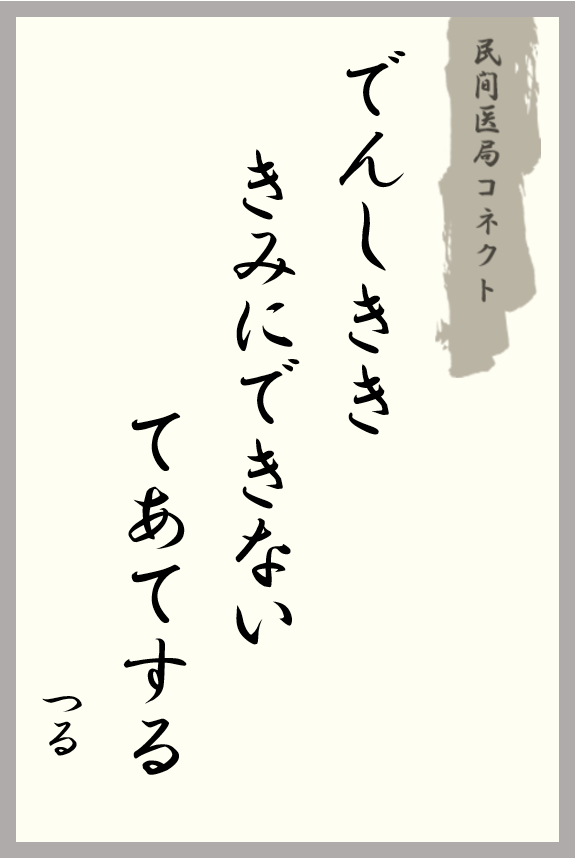 民間医局コネクト
でんしきき
きみにできない
てあてする
つる